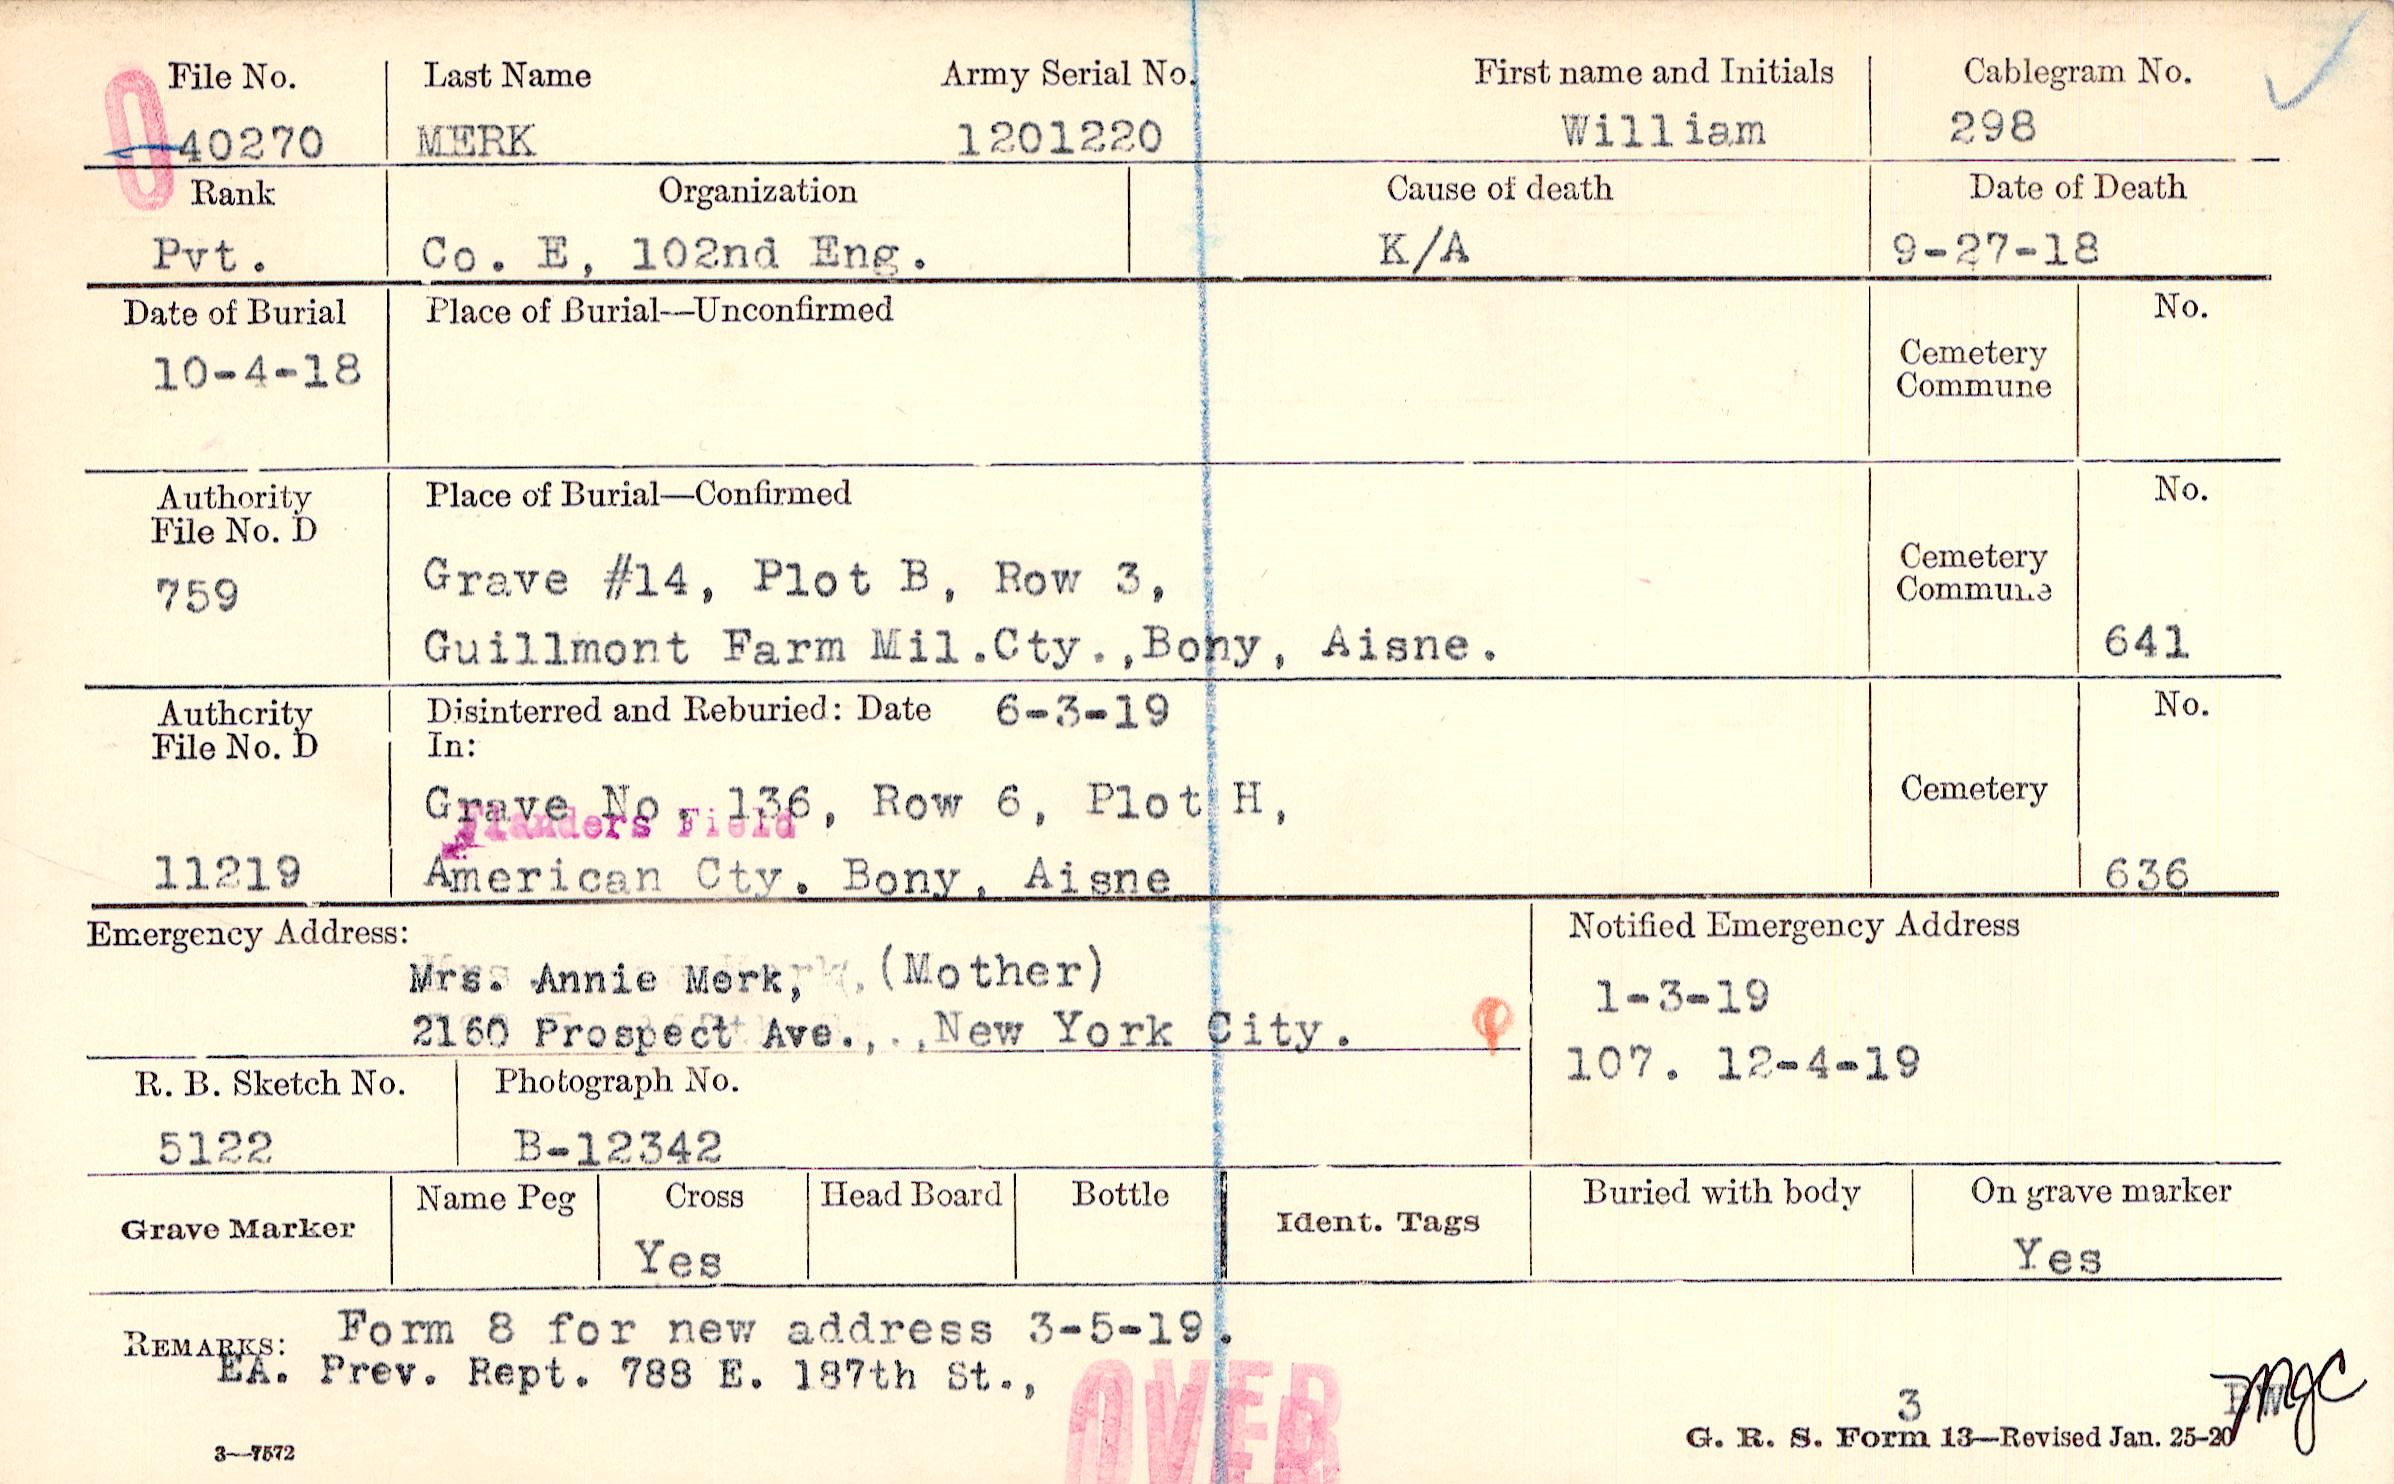 File No. Last Name Army Serial No. First name and Initials Cablegram No.
0
40270 MERK 1201220 William 298
Rank Organization Cause of death Date of Death
Pvt. Co. E, 102nd Eng. K/A 9-27-18
Date of Burial Place of Burial—Unconfirmed No.
10-4-18 Cemetery
Commune
Authority Place of Burial—Confirmed No.
File No. D
759 Grave #14, Plot B, Row 3, Cemetery
Commune
Guillmont Farm Mil.Cty.,Bony, Aisne. 641
Authority Disinterred and Reburied: Date 6-3-19 No.
File No. D In:
Grave No. 136, Row 6, Plot H, Cemetery
Flanders Field
11219 American Cty. Bony, Aisne 636
Emergency Address: Notified Emergency Address
Mrs. Annie Merk, (Mother) 1-3-19
2160 Prospect Ave.,.,New York City. 107. 12-4-19
R. B. Sketch No. Photograph No.
5122 B-12342
Grave Marker Name Peg Cross Head Board Bottle Ident. Tags Buried with body On grave marker
Yes Yes
REMARKS: Form 8 for new address 3-5-19.
EA. Prev. Rept. 788 E. 187th St.,
OVER
OVER
3 mgc
3—7572 G. R. S. Form 13—Revised Jan. 25-20